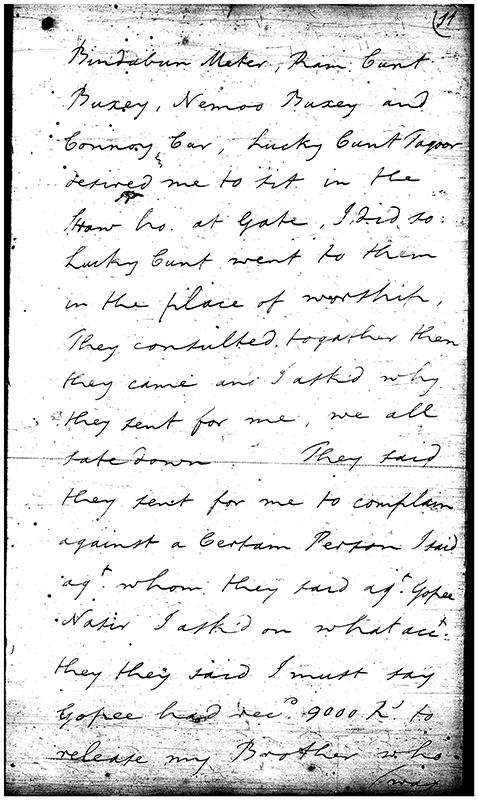 11
Bindabun Meter, Ram Cunt
Buxey, Nemoo Buxey and
Connoy Car, Lucky Cunt Tagoor
desired me to sit in the
Straw ho. at Gate, I did so:
Lucky Cunt went to them
in the place of worship,
They consulted togather then
they came and I askd why
they sent for me, we all
sate down They said
they sent for me to complain
against a Certain Person I said
agt. whom they said agt. Gopee
Nasir I askd on what acct:
they they said I must say
Gopee had recd 9000 Rs to
release my Brother who
was